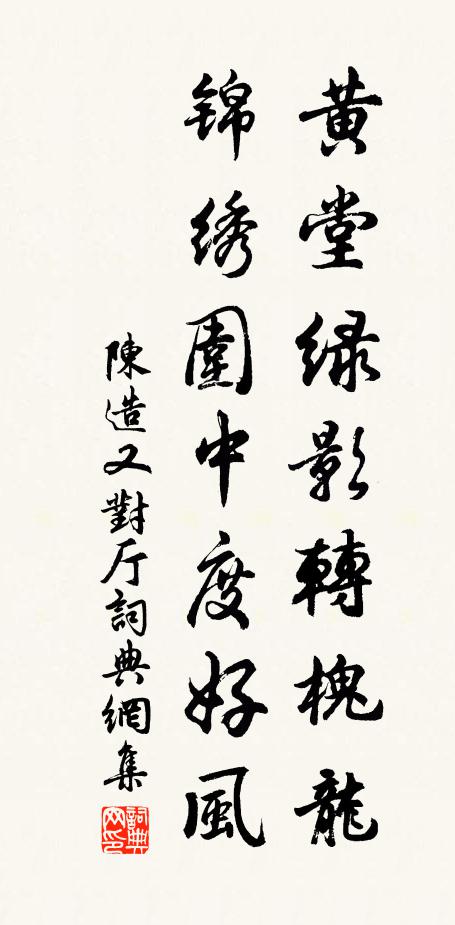 黄堂緑影轉槐龍
錦綉圍中度好風
陳造又對厅詞典網集
詞典网印